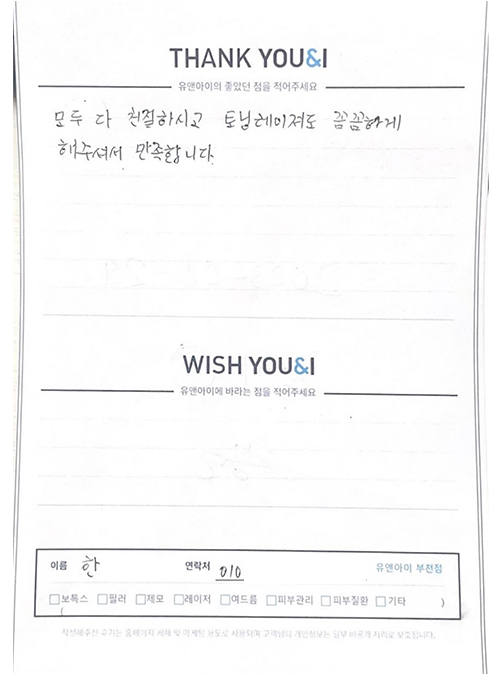 THANK YOU&I
유앤아이의 좋았던 점을 적어주세요
모두 다 친절하시고 토닝레이저도 꼼꼼하게
해주셔서 만족합니다
WISH YOU&I
유앤아이에 바라는 점을 적어주세요
이름 한 연락처 010 유앤아이 부천점
□보톡스 □필러 □제모 □레이저 □여드름 □피부관리 □피부질환 □기타 )
(
작성해주신 후기는 홈페이지 게재 및 마케팅 용도로 사용되며 고객님의 개인정보는 일부 비공개 처리로 보호됩니다.